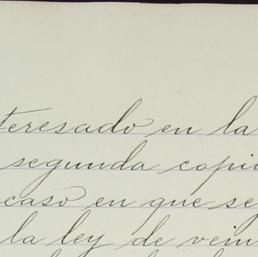 teresado en la
segunda copi
caso en que se
la ley de vein